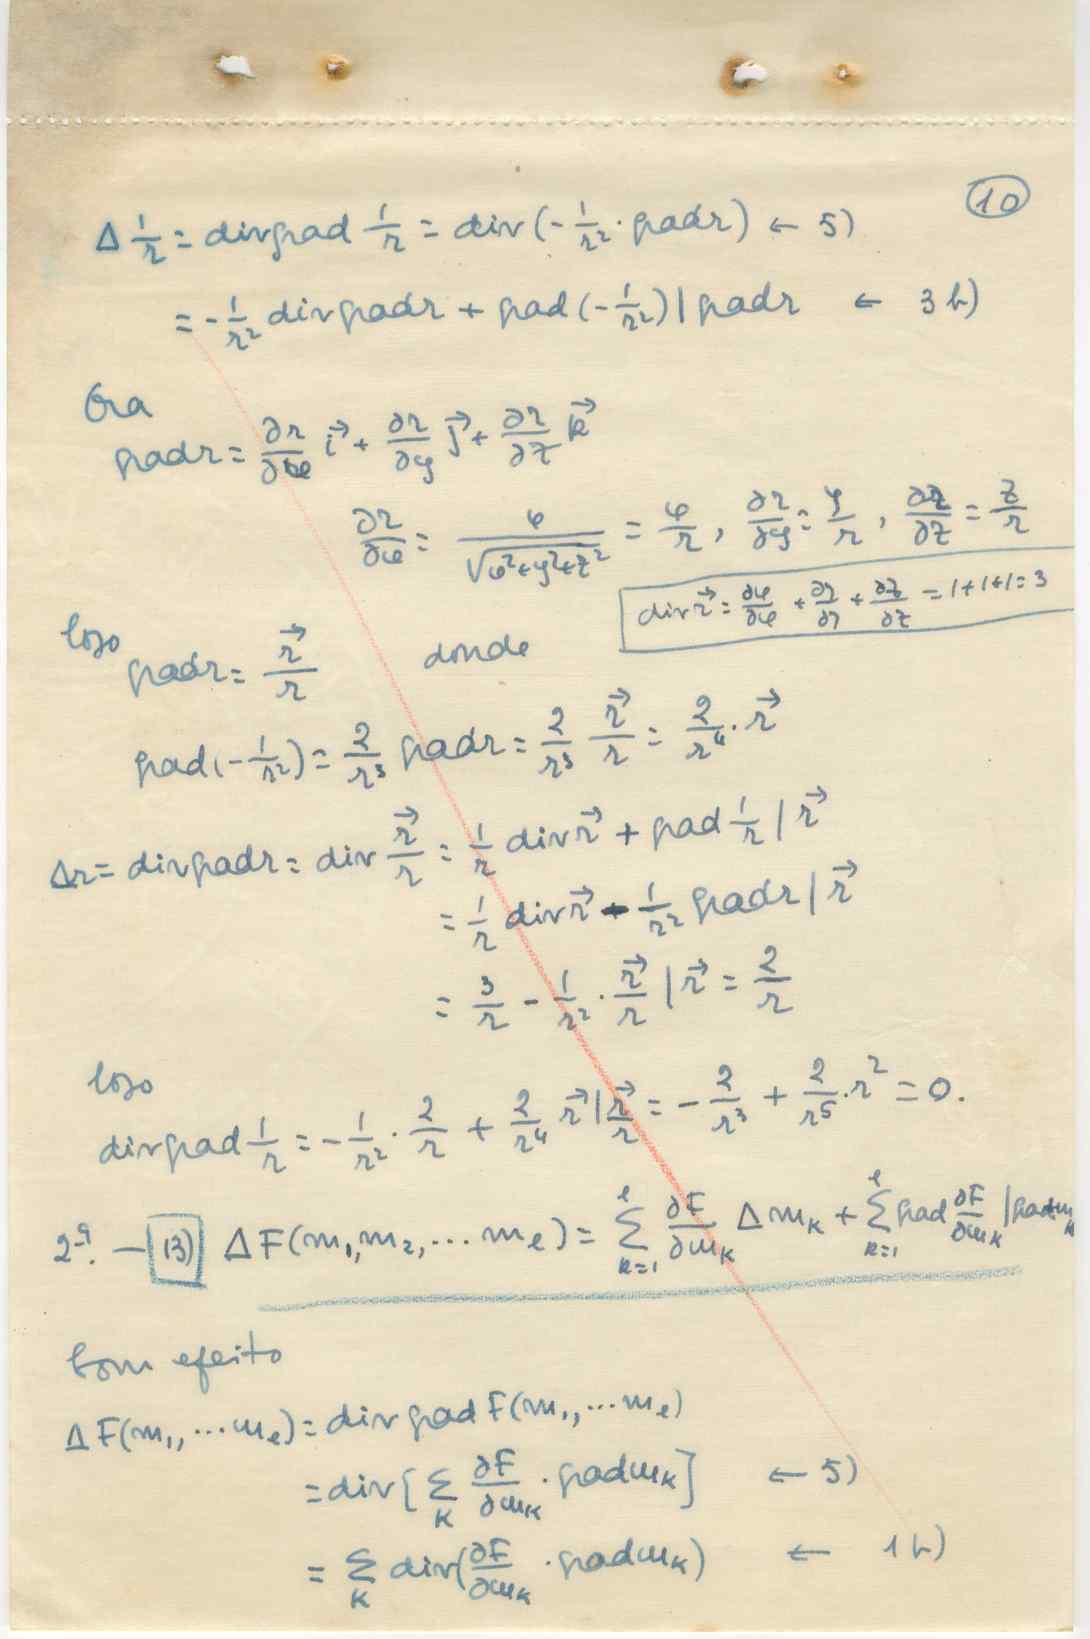 10
Δ 1/r = div grad 1/r = div (- 1/r² · grad r) ← 5)
= - 1/r² div grad r + grad (- 1/r²) | grad r ← 3 b)
Ora
grad r = ∂r/∂x i⃗ + ∂r/∂y j⃗ + ∂r/∂z k⃗
∂r/∂x = x/√(x²+y²+z²) = x/r, ∂r/∂y = y/r, ∂r/∂z = z/r
div r⃗ = ∂x/∂x + ∂y/∂y + ∂z/∂z = 1+1+1 = 3
logo
grad r = r⃗/r donde
grad (- 1/r²) = 2/r³ grad r = 2/r³ r⃗/r = 2/r⁴ · r⃗
Δr = div grad r = div r⃗/r = 1/r div r⃗ + grad 1/r | r⃗
= 1/r div r⃗ - 1/r² grad r | r⃗
= 3/r - 1/r² · r⃗/r | r⃗ = 2/r
logo
div grad 1/r = - 1/r² · 2/r + 2/r⁴ r⃗ | r⃗/r = - 2/r³ + 2/r⁵ · r² = 0.
2ª. - 13) Δ F(m₁, m₂, ... mₑ) = Σ_{k=1}^{e} ∂F/∂mₖ Δ mₖ + Σ_{k=1}^{e} grad ∂F/∂mₖ | grad mₖ
Com efeito
Δ F(m₁, ... mₑ) = div grad F(m₁, ... mₑ)
= div [Σ_k ∂F/∂mₖ · grad mₖ] ← 5)
= Σ_k div (∂F/∂mₖ · grad mₖ) ← 1 b)